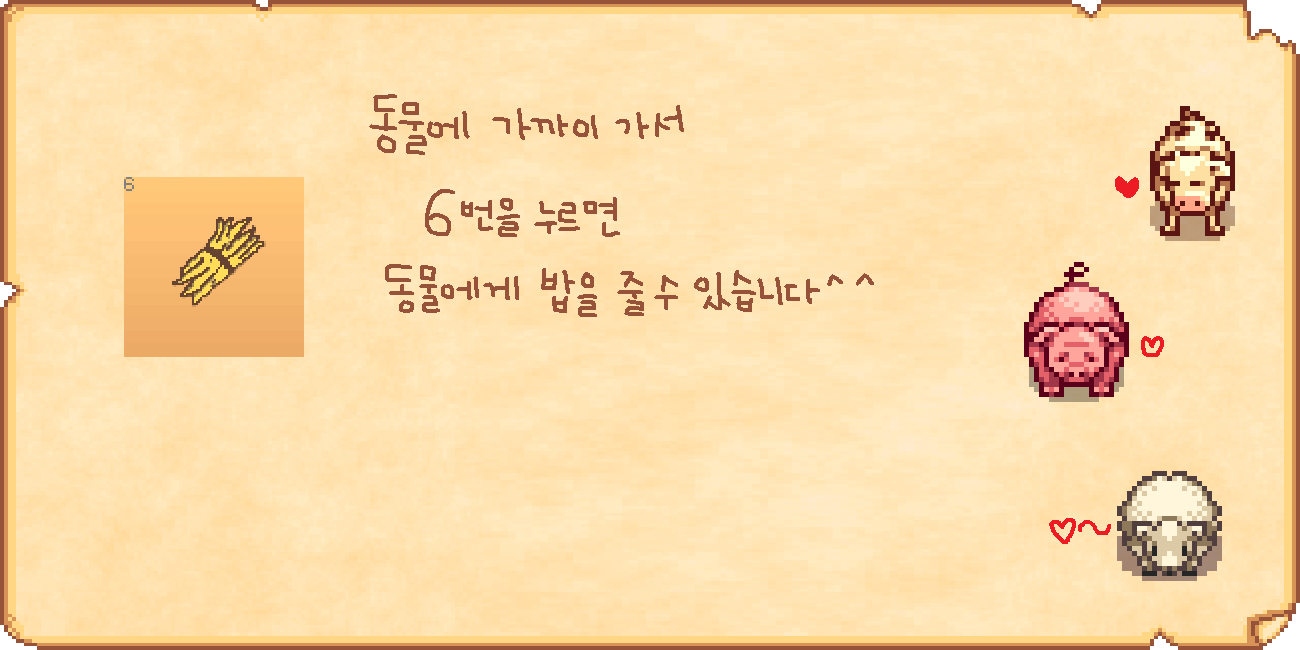 동물에 가까이 가서
6
6번을 누르면
동물에게 밥을 줄 수 있습니다^^